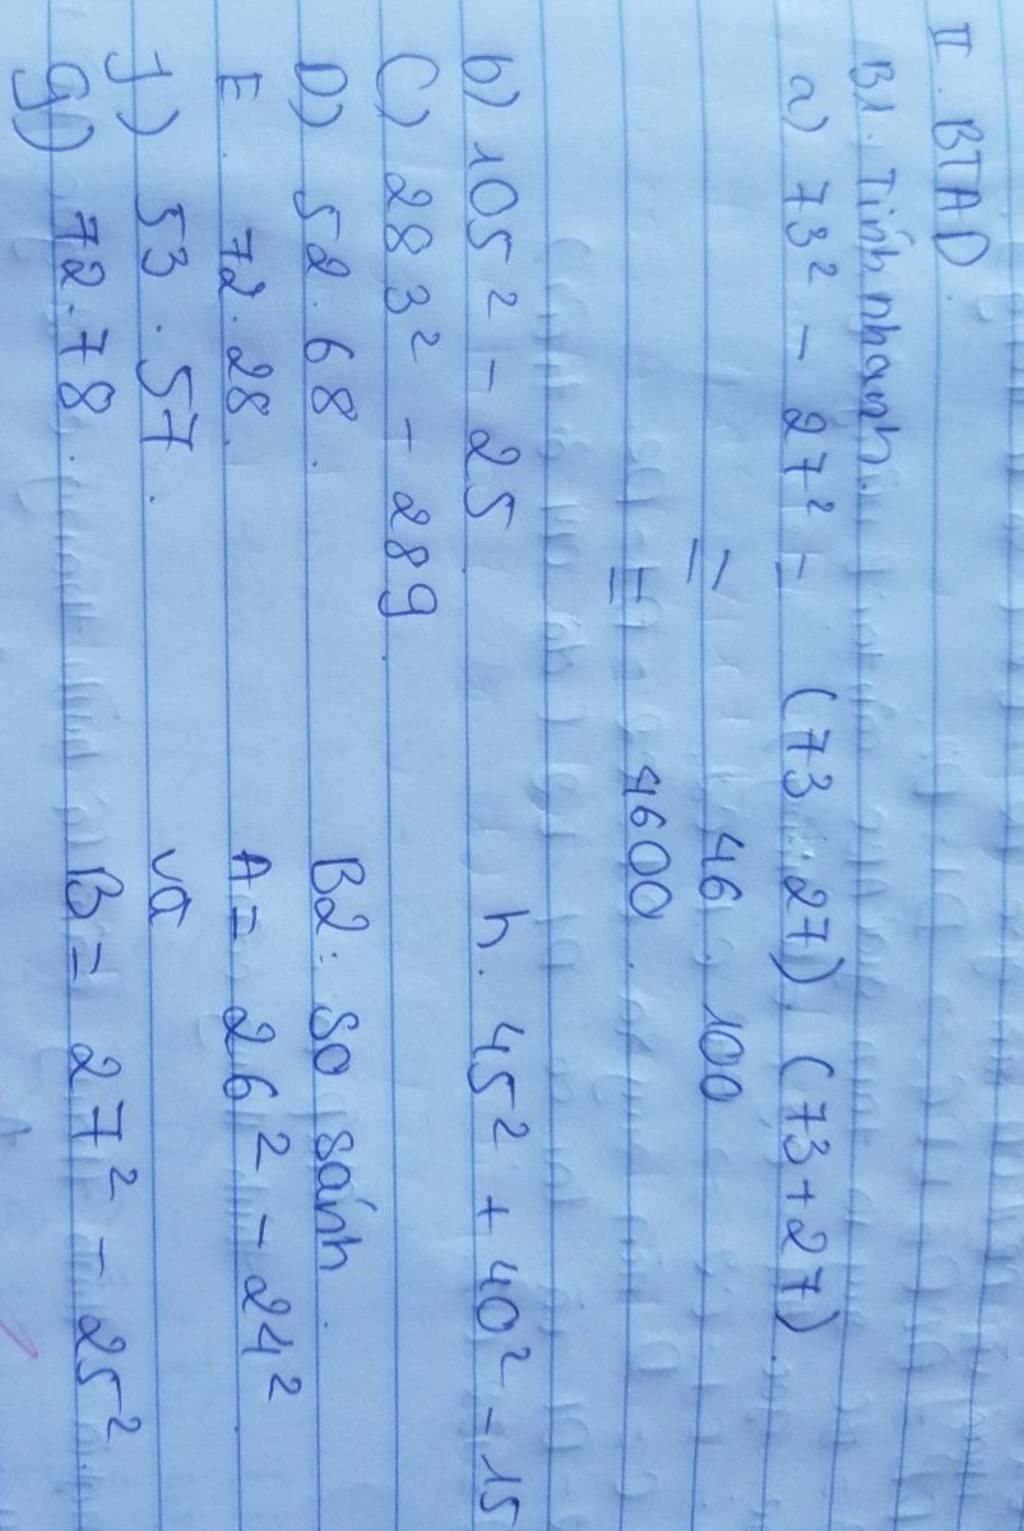 II. BTAD
B1. Tính nhanh.
a) 73² - 27² = (73 - 27) (73 + 27).
= 46 . 100
= 4600.
b) 105² - 25
h. 45² + 40² - 15
C) 283² - 289
D) 52.68.
B2: so sánh.
E. 72.28.
A = 26² - 24²
J) 53.57.
và
g) 72.78.
B = 27² - 25²